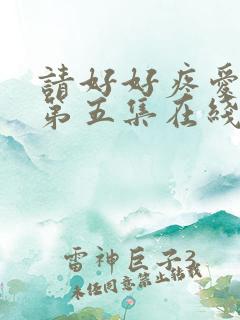 請好好疼愛
第五集在綫
雷神巨子3
未经同意禁止转载